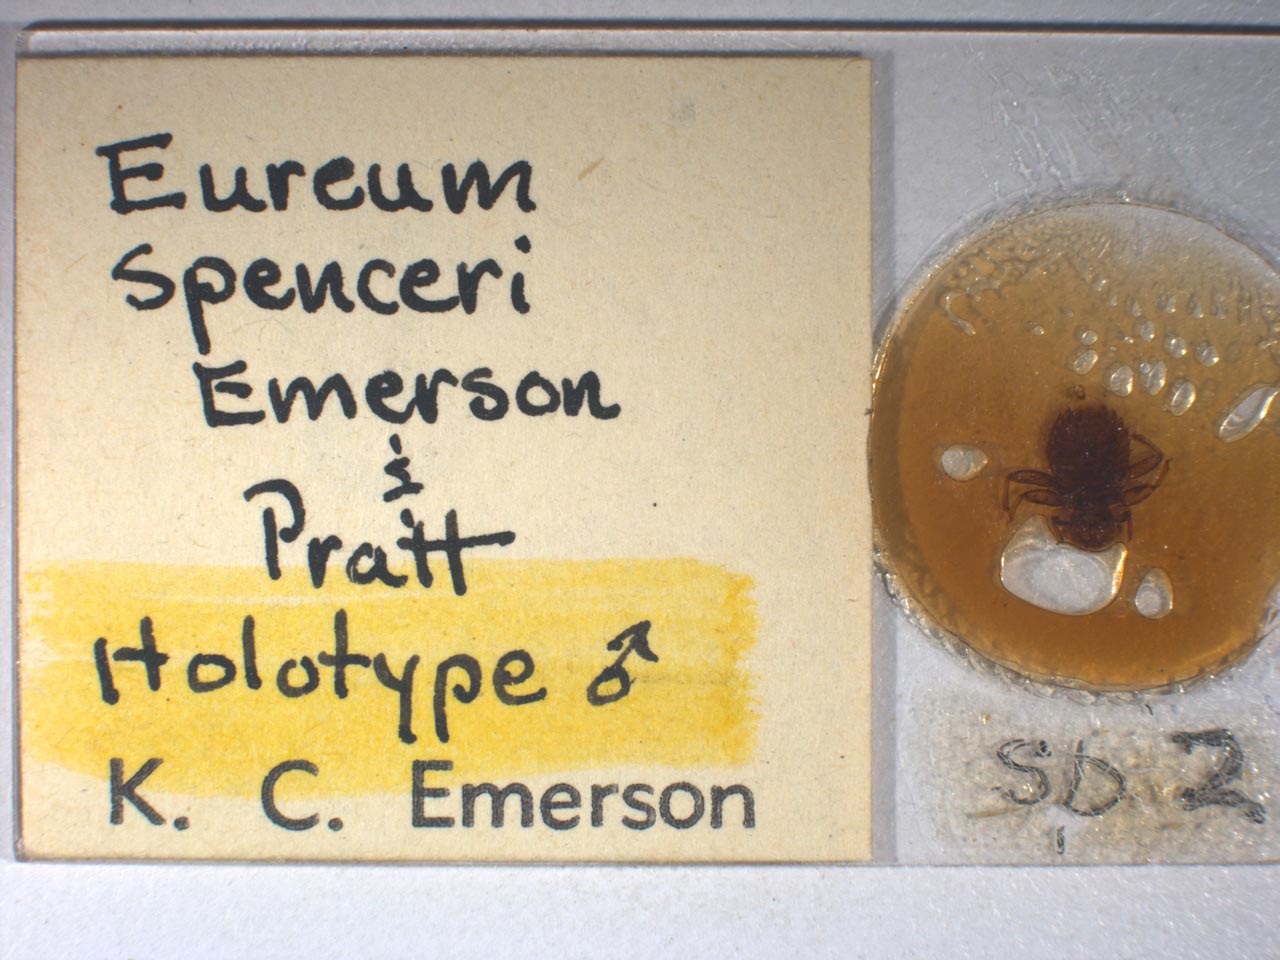 Eureum
Spenceri
Emerson
&
Pratt
Holotype ♂
K. C. Emerson
SD 2